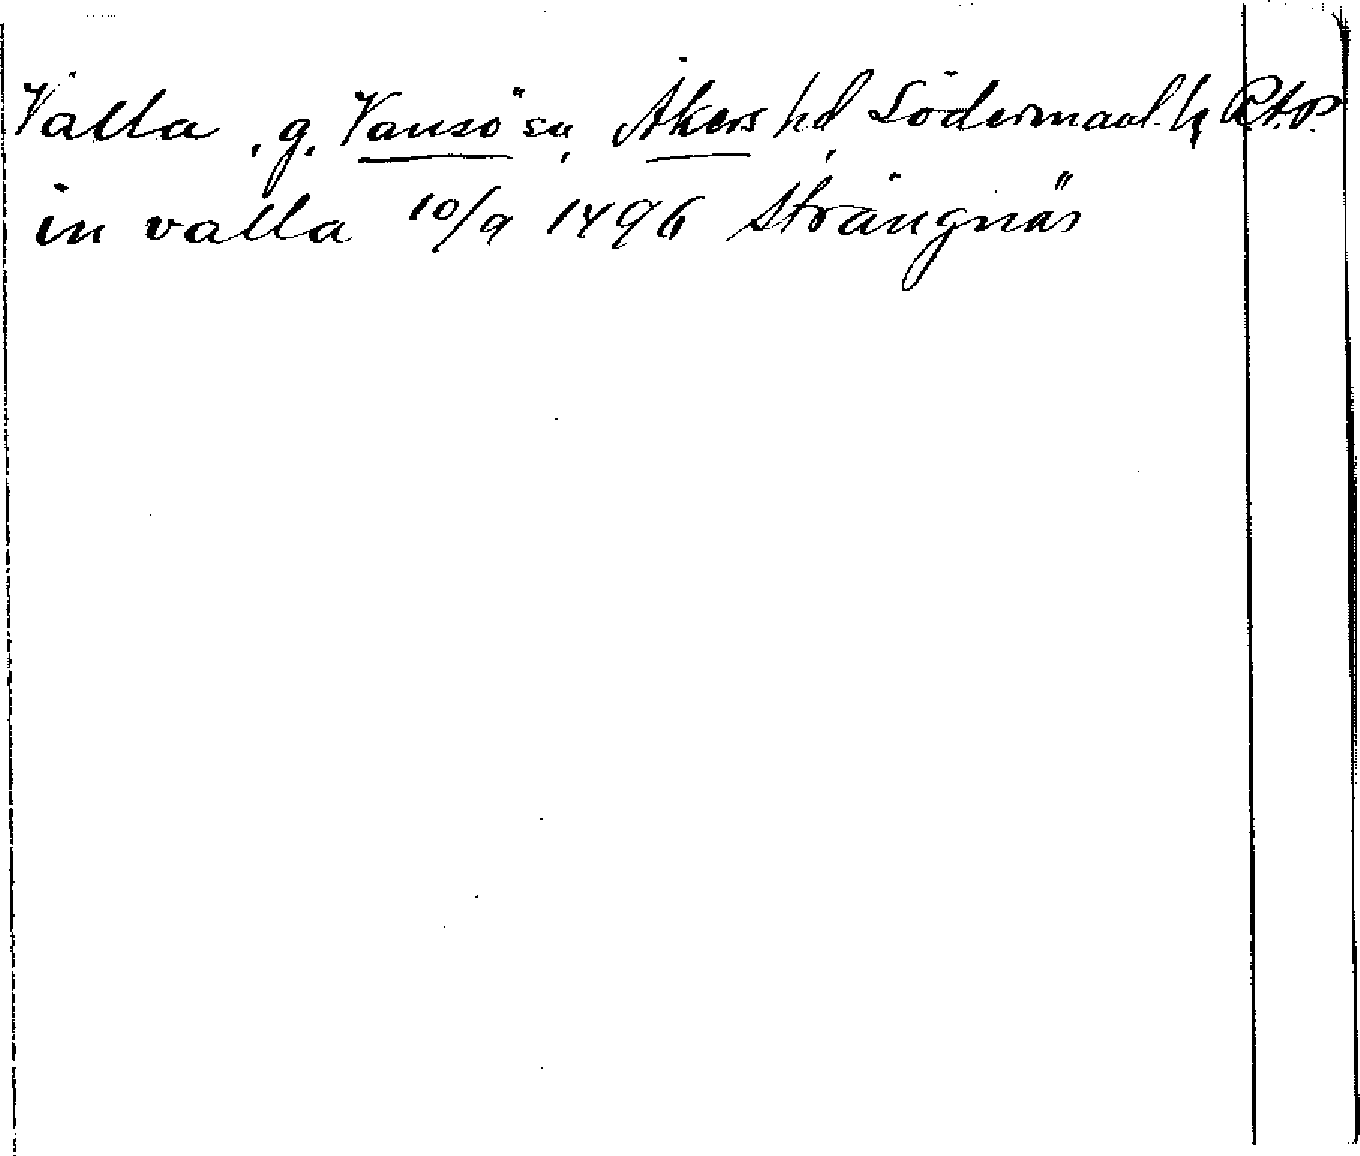 Valla, g. Vansö sn, Åkers hd, Södermanl. l, R.A.P.
in valla 10/9 1496 Strängnäs